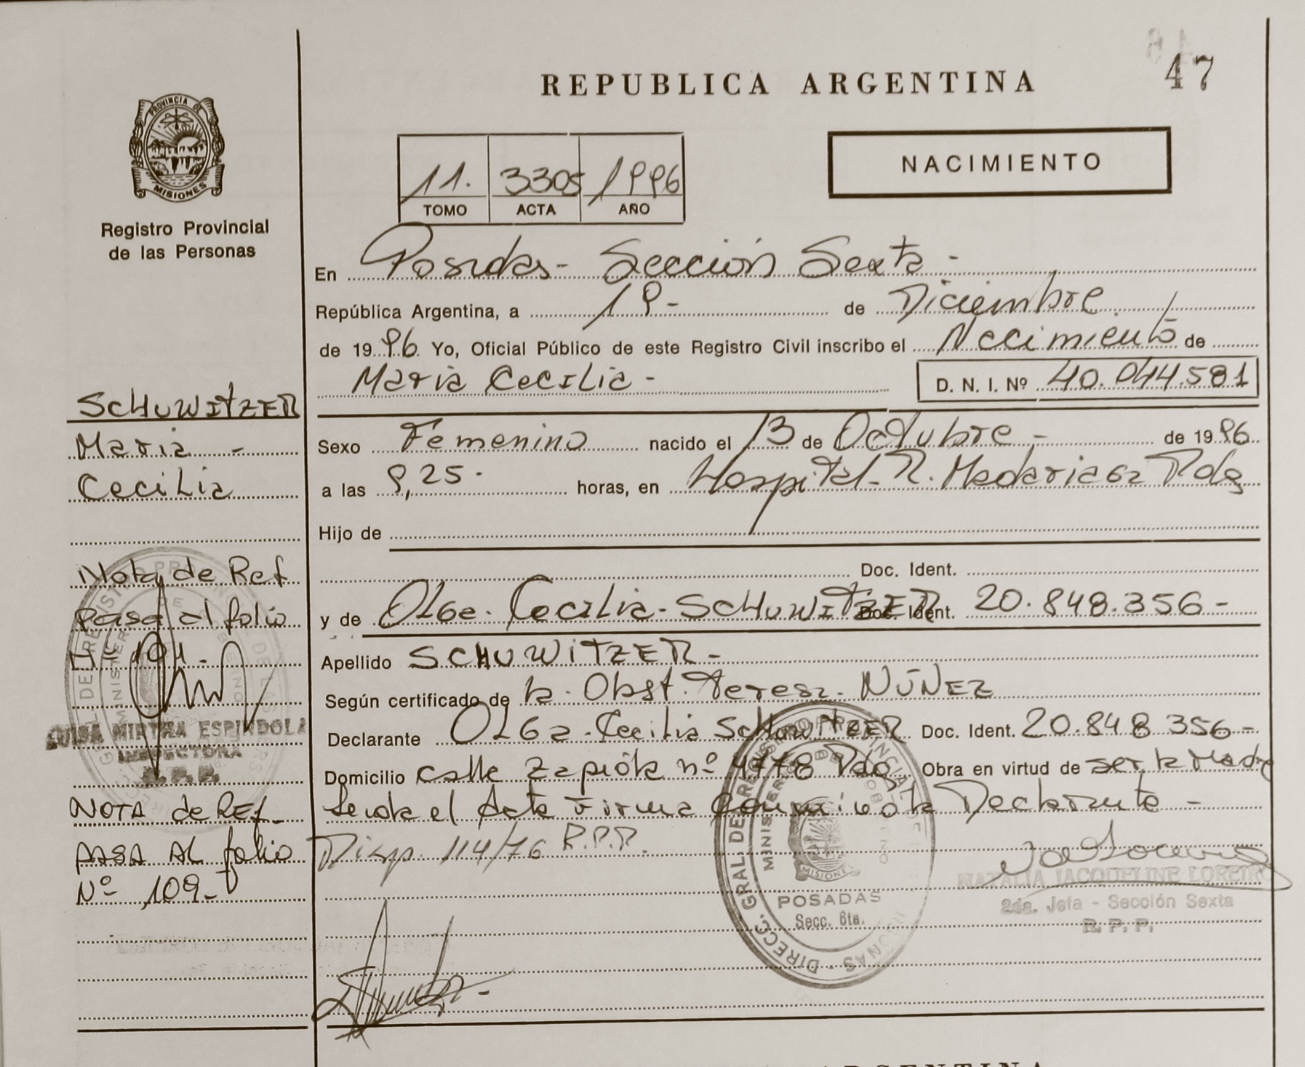 47
REPUBLICA ARGENTINA
PROVINCIA DE
MISIONES
Registro Provincial
de las Personas
11. 3305 1996
TOMO ACTA AÑO
NACIMIENTO
En Posadas - Sección Sexta -
República Argentina, a 19- de Diciembre
de 19 96 Yo, Oficial Público de este Registro Civil inscribo el Nacimiento de
Maria Cecilia - D. N. I. Nº 40.044.581
SCHUWITZER
Maria -
Cecilia
Sexo Femenino nacido el 13 de Octubre - de 19 96
a las 9,25 - horas, en Hospital R. Madariaga Pdas
Hijo de
Doc. Ident.
y de Olga Cecilia - SCHUWITZER Doc. Ident. 20.848.356 -
Apellido SCHUWITZER -
Según certificado de la Obst. Teresa NÚÑEZ
Declarante Olga Cecilia SCHUWITZER Doc. Ident. 20.848.356 -
Domicilio calle Zapiola nº 4778 Pdas Obra en virtud de ser la Madre
Leida el Acta Firma Conmigo la Declarante -
Disp. 114/76 R.P.P.
Nota de Ref.
Pasa al folio
Nº 101.
MIRTHA ESPINDOLA
INSPECTORA
R. P. P.
NOTA de Ref.
PASA AL folio
Nº 109-
POSADAS
Secc. 6ta.
NATALIA JACQUELINE
2da. Jefa - Sección Sexta
R. P. P.
ARGENTINA